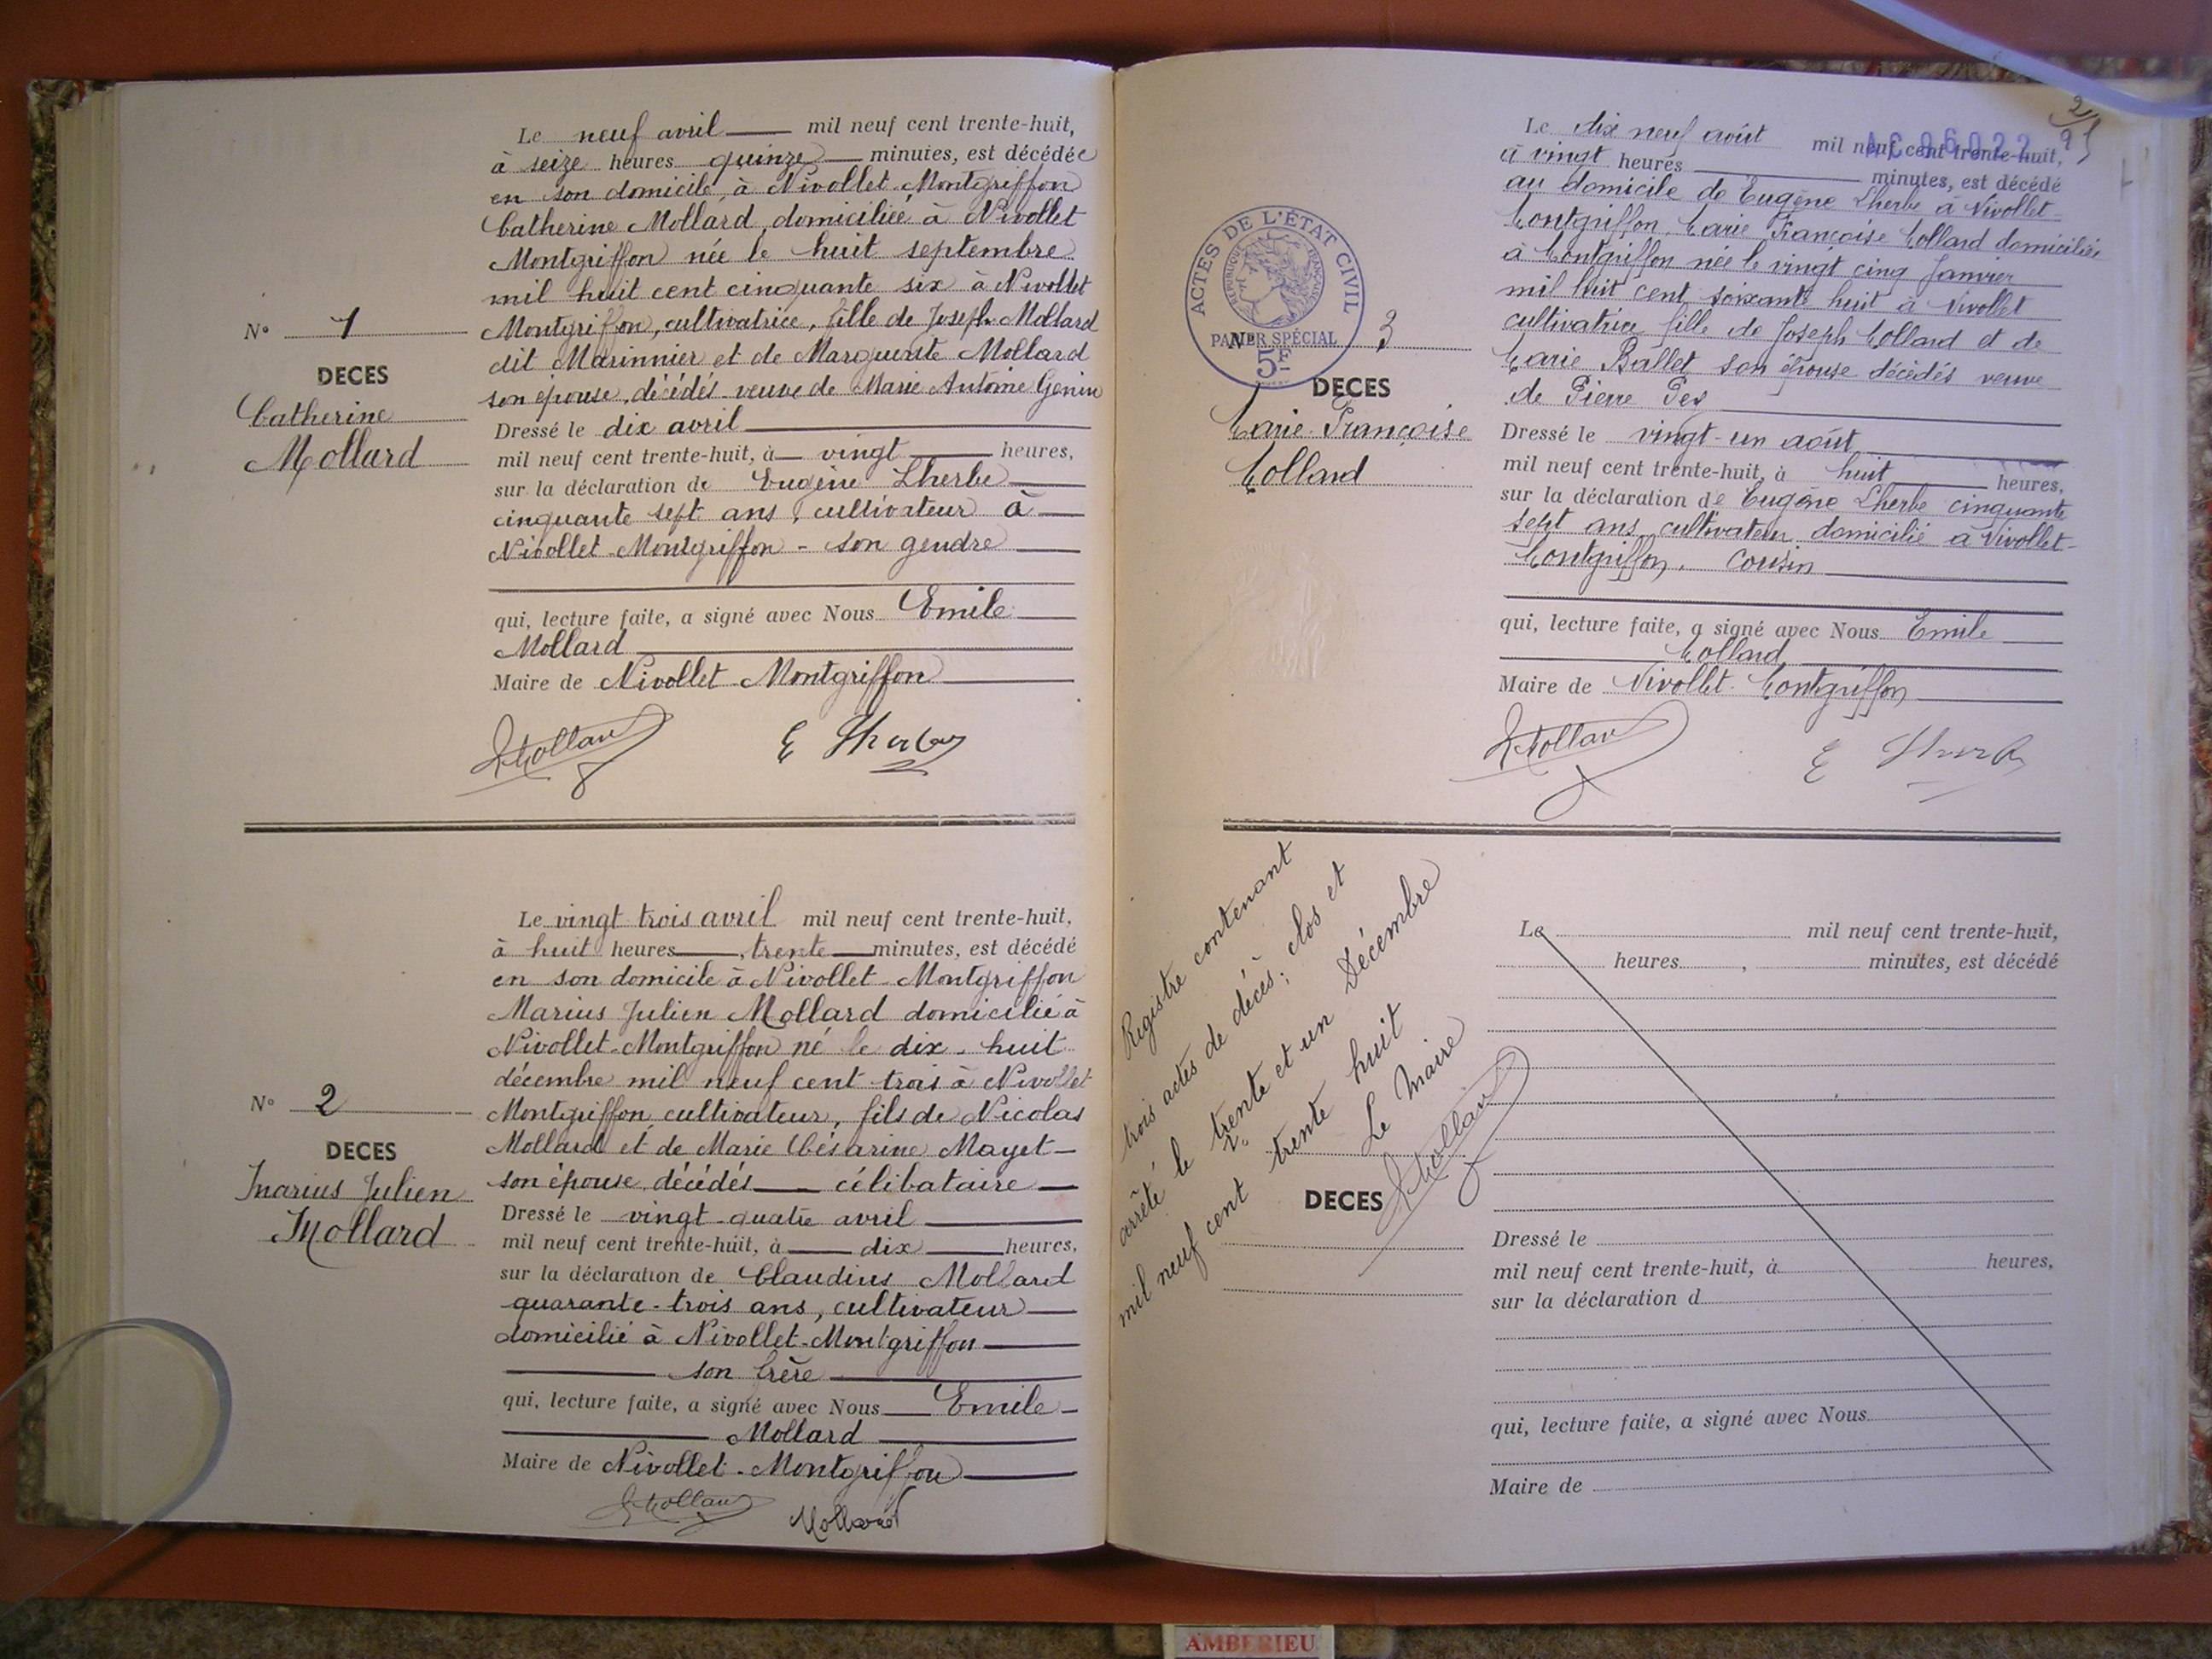 Le neuf avril mil neuf cent trente-huit,
à seize heures quinze minutes, est décédée
en son domicile à Nivollet-Montgriffon
Catherine Mollard, domiciliée à Nivollet
Montgriffon née le huit septembre
mil huit cent cinquante six à Nivollet
Montgriffon, cultivatrice, fille de Joseph Mollard
dit Marinnier et de Marguerite Mollard
son épouse, décédés veuve de Marie Antoine Genin
Dressé le dix avril
mil neuf cent trente-huit, à vingt heures,
sur la déclaration de Eugène Lherbe
cinquante sept ans, cultivateur à
Nivollet-Montgriffon - son gendre
qui, lecture faite, a signé avec Nous Emile
Mollard
Maire de Nivollet Montgriffon
EMollard E Lherbe
N° 1
DECES
Catherine
Mollard
Le vingt trois avril mil neuf cent trente-huit,
à huit heures, trente minutes, est décédé
en son domicile à Nivollet-Montgriffon
Marius Julien Mollard domicilié à
Nivollet-Montgriffon né le dix-huit
décembre mil neuf cent trois à Nivollet
Montgriffon, cultivateur, fils de Nicolas
Mollard et de Marie Césarine Mayet
son épouse, décédés célibataire
Dressé le vingt-quatre avril
mil neuf cent trente-huit, à dix heures,
sur la déclaration de Claudius Mollard
quarante-trois ans, cultivateur
domicilié à Nivollet-Montgriffon
son frère
qui, lecture faite, a signé avec Nous Emile
Mollard
Maire de Nivollet-Montgriffon
EMollard Mollard
N° 2
DECES
Marius Julien
Mollard
2
95
AC 06022
Le dix neuf août mil neuf cent trente-huit,
à vingt heures minutes, est décédé
au domicile de Eugène Lherbe à Nivollet-
Montgriffon, Marie Françoise Mollard domiciliée
à Montgriffon née le vingt cinq Janvier
mil huit cent soixante huit à Nivollet
cultivatrice fille de Joseph Mollard et de
Marie Ballet son épouse décédés veuve
de Pierre
Dressé le vingt-un août
mil neuf cent trente-huit, à huit heures,
sur la déclaration de Eugène Lherbe cinquante
sept ans, cultivateur domicilié à Nivollet-
Montgriffon, cousin
qui, lecture faite, a signé avec Nous Emile
Mollard
Maire de Nivollet-Montgriffon
EMollard E Lherbe
ACTES DE L'ÉTAT CIVIL
RÉPUBLIQUE FRANÇAISE
PAPIER SPÉCIAL
5F
N° 3
DECES
Marie Françoise
Mollard
Registre contenant
trois actes de décès; clos et
arrêté le trente et un Décembre
mil neuf cent trente huit
Le Maire
EMollard
N°
DECES
Le mil neuf cent trente-huit,
heures, minutes, est décédé
Dressé le
mil neuf cent trente-huit, à heures,
sur la déclaration d
qui, lecture faite, a signé avec Nous
Maire de
AMBERIEU